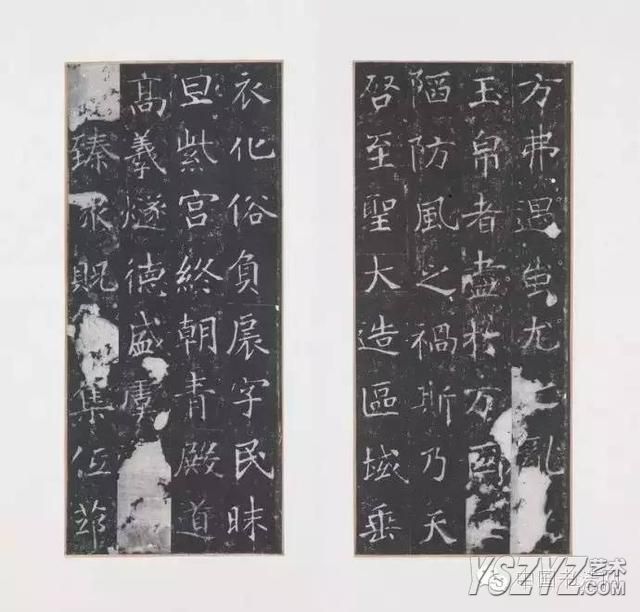 方弗過蚩尤之亂
玉帛者盡於万國
陋防風之禍斯乃天
啓至聖大造區域垂
衣化俗負扆字民昧
旦紫宮終朝青殿道
高羲燧德盛虞
臻 既集位莭
YSZYZ艺术